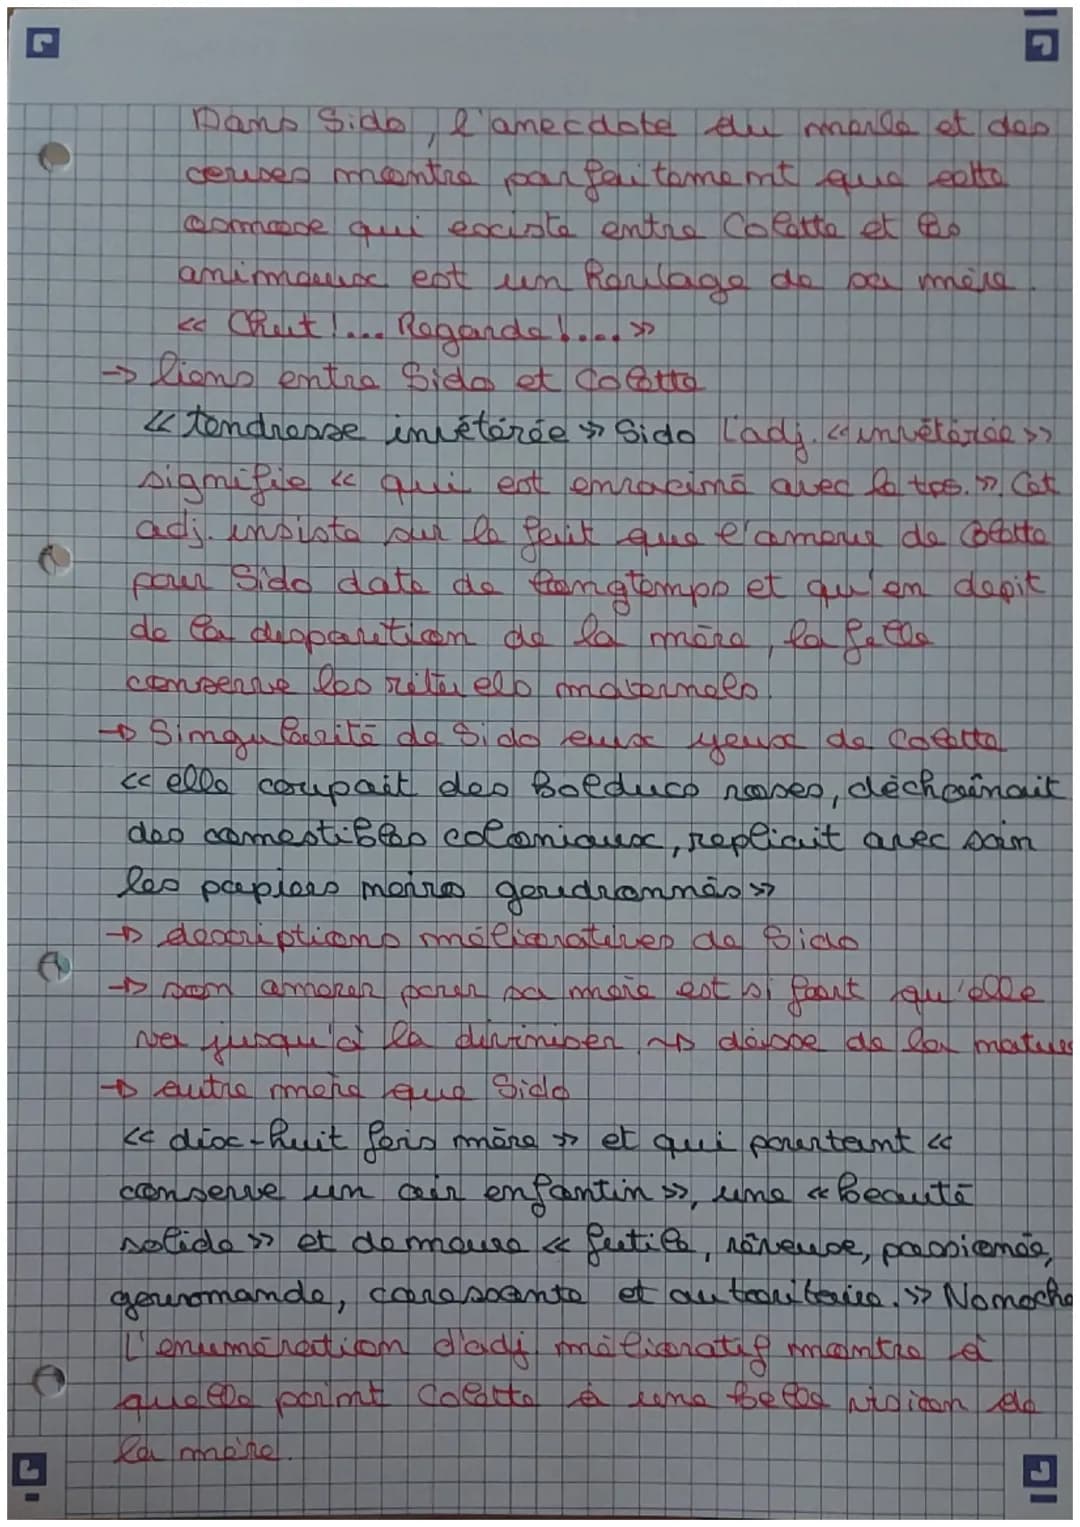 Dans Sido, l'anecdote du merle et des
cerises montre parfaitement que cette
qui existe entre Colette et les
animaux est un héritage de sa mère.
« Chut !... Regarde !... »
→ liens entre Sido et Colette
« tendresse invétérée » Sido L'adj. « invétérée »
signifie « qui est enraciné avec le tps. » Cet
adj. insiste sur le fait que l'amour de Colette
pour Sido date de longtemps et qu'en depit
de la disparition de la mère, la fille
conserve les rituels maternels.
→ Singularité de Sido aux yeux de Colette
« elle coupait des bolducs roses, déchaînait
des comestibles coloniaux, repliait avec soin
les papiers noirs goudronnés »
→ descriptions mélioratives de Sido
→ son amour pour sa mère est si fort qu'elle
va jusqu'à la diviniser → déesse de la nature
→ autre mère que Sido
« dix-huit fois mère » et qui pourtant «
conserve un air enfantin », une « beauté
solide » et demeure « futile, rêveuse, passionnée,
gourmande, caressante et autoritaire. » Nonoche
L'énumération d'adj. mélioratif montre à
quelle point Colette à une belle vision de
la mère.